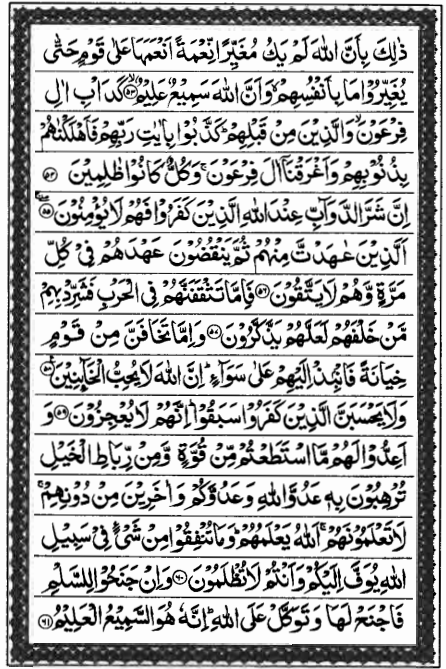 ذٰلِكَ بِاَنَّ اللّٰهَ لَمْ يَكُ مُغَيِّرًا نِّعْمَةً اَنْعَمَهَا عَلٰى قَوْمٍ حَتّٰى
يُغَيِّرُوْا مَا بِاَنْفُسِهِمْ ۙ وَاَنَّ اللّٰهَ سَمِيْعٌ عَلِيْمٌ ۙ﴿۵۳﴾ كَدَاْبِ اٰلِ
فِرْعَوْنَ ۙ وَالَّذِيْنَ مِنْ قَبْلِهِمْ ؕ كَذَّبُوْا بِاٰيٰتِ رَبِّهِمْ فَاَهْلَكْنٰهُمْ
بِذُنُوْبِهِمْ وَاَغْرَقْنَاۤ اٰلَ فِرْعَوْنَ ۚ وَكُلٌّ كَانُوْا ظٰلِمِيْنَ ﴿۵۴﴾
اِنَّ شَرَّ الدَّوَآبِّ عِنْدَ اللّٰهِ الَّذِيْنَ كَفَرُوْا فَهُمْ لَا يُؤْمِنُوْنَ ﴿۵۵﴾
اَلَّذِيْنَ عٰهَدْتَّ مِنْهُمْ ثُمَّ يَنْقُضُوْنَ عَهْدَهُمْ فِىْ كُلِّ
مَرَّةٍ وَّهُمْ لَا يَتَّقُوْنَ ﴿۵۶﴾ فَاِمَّا تَثْقَفَنَّهُمْ فِى الْحَرْبِ فَشَرِّدْ بِهِمْ
مَّنْ خَلْفَهُمْ لَعَلَّهُمْ يَذَّكَّرُوْنَ ﴿۵۷﴾ وَاِمَّا تَخَافَنَّ مِنْ قَوْمٍ
خِيَانَةً فَانْۢبِذْ اِلَيْهِمْ عَلٰى سَوَآءٍ ؕ اِنَّ اللّٰهَ لَا يُحِبُّ الْخَآئِنِيْنَ ﴿۵۸﴾
وَلَا يَحْسَبَنَّ الَّذِيْنَ كَفَرُوْا سَبَقُوْا ؕ اِنَّهُمْ لَا يُعْجِزُوْنَ ﴿۵۹﴾ وَ
اَعِدُّوْا لَهُمْ مَّا اسْتَطَعْتُمْ مِّنْ قُوَّةٍ وَّمِنْ رِّبَاطِ الْخَيْلِ
تُرْهِبُوْنَ بِهٖ عَدُوَّ اللّٰهِ وَعَدُوَّكُمْ وَاٰخَرِيْنَ مِنْ دُوْنِهِمْ ۚ
لَا تَعْلَمُوْنَهُمْ ۚ اَللّٰهُ يَعْلَمُهُمْ ؕ وَمَا تُنْفِقُوْا مِنْ شَىْءٍ فِىْ سَبِيْلِ
اللّٰهِ يُوَفَّ اِلَيْكُمْ وَاَنْتُمْ لَا تُظْلَمُوْنَ ﴿۶۰﴾ وَاِنْ جَنَحُوْا لِلسَّلْمِ
فَاجْنَحْ لَهَا وَتَوَكَّلْ عَلَى اللّٰهِ ؕ اِنَّهٗ هُوَ السَّمِيْعُ الْعَلِيْمُ ﴿۶۱﴾